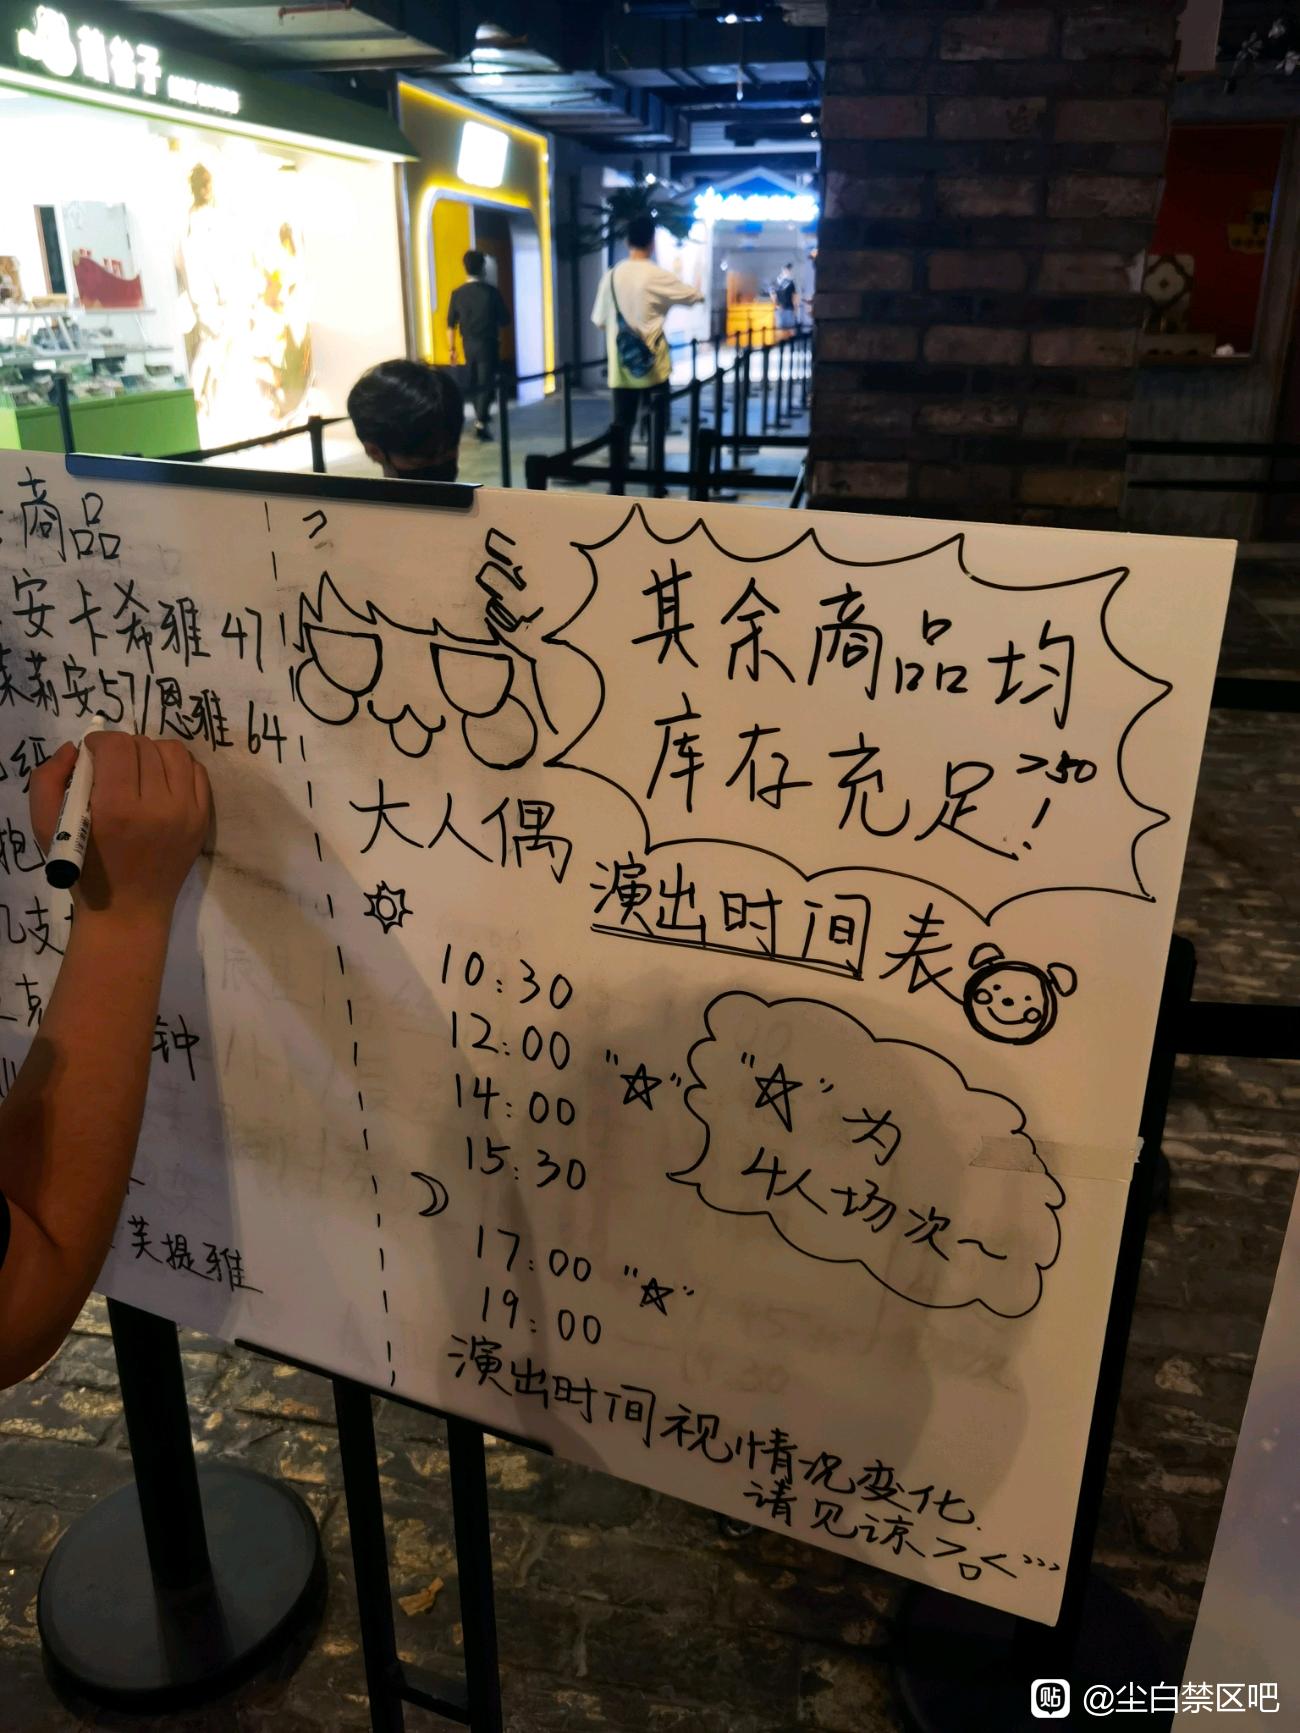 谷子
商品
安卡希雅 47
茉莉安57/恩雅 64
抱
钟
芙提雅
其余商品均
库存充足! >50
大人偶
演出时间表
10:30
12:00
14:00 "☆"
15:30
17:00 "☆"
19:00
"☆"为
4人场次~
演出时间视情况变化.
请见谅>口<
贴 @尘白禁区吧